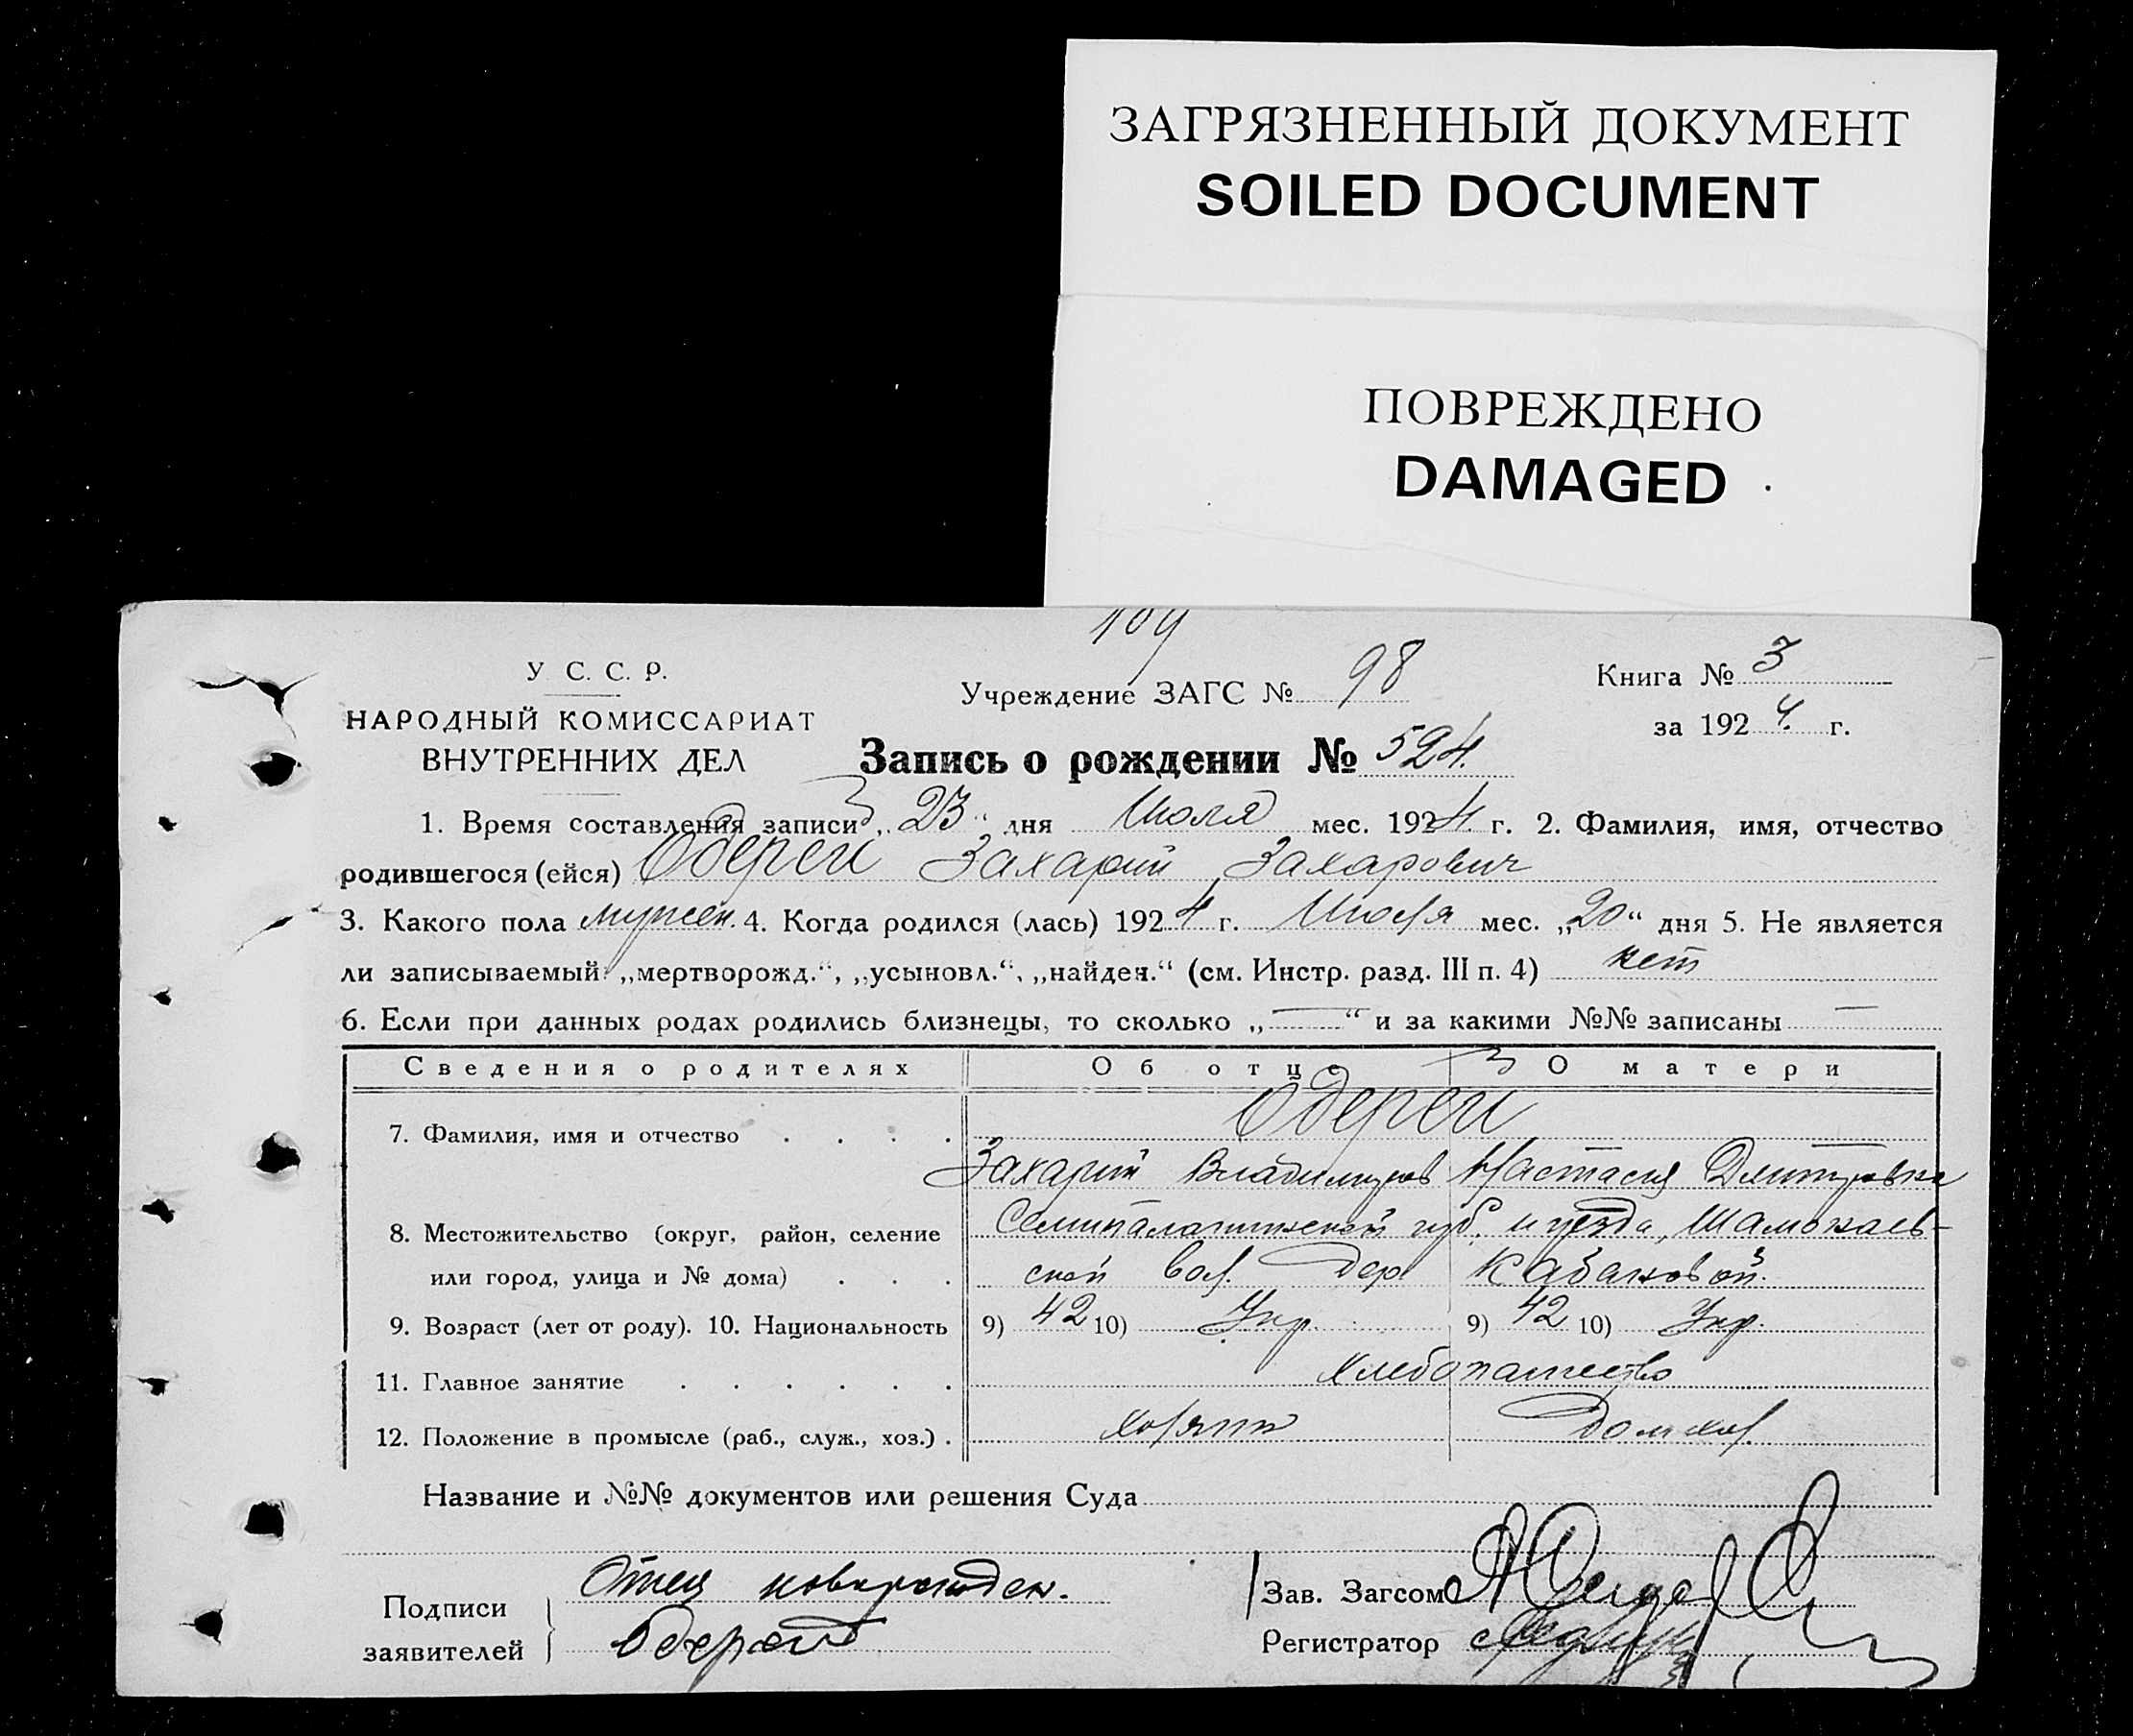 ЗАГРЯЗНЕННЫЙ ДОКУМЕНТ
SOILED DOCUMENT
ПОВРЕЖДЕНО
DAMAGED
109
У. С. С. Р.
НАРОДНЫЙ КОМИССАРИАТ
ВНУТРЕННИХ ДЕЛ
Учреждение ЗАГС № 98
Книга № 3
за 1924 г.
Запись о рождении № 524.
1. Время составления записи „23“ дня Июля мес. 1924 г. 2. Фамилия, имя, отчество
родившегося (ейся) Одерей Захарий Захарович
3. Какого пола мужск. 4. Когда родился (лась) 1924 г. Июля мес. „20“ дня 5. Не является
ли записываемый: „мертворожд.“, „усыновл.“, „найден.“ (см. Инстр. разд. III п. 4) нет
6. Если при данных родах родились близнецы, то сколько „—“ и за какими №№ записаны —
Сведения о родителях Об отце О матери
7. Фамилия, имя и отчество . . . . Одерей
Захарий Владимиров Настасия Дмитровна
8. Местожительство (округ, район, селение Семипалатинской губ. и уезда,
или город, улица и № дома) . . . ской вол. дер. Кабановой.
9. Возраст (лет от роду). 10. Национальность 9) 42 10) Укр. 9) 42 10) Укр.
11. Главное занятие . . . . . . Хлебопашество
12. Положение в промысле (раб., служ., хоз.) . хозяин дом. хоз.
Название и №№ документов или решения Суда
Подписи
заявителей
Отец новорожден.
Одерей
Зав. Загсом
Регистратор